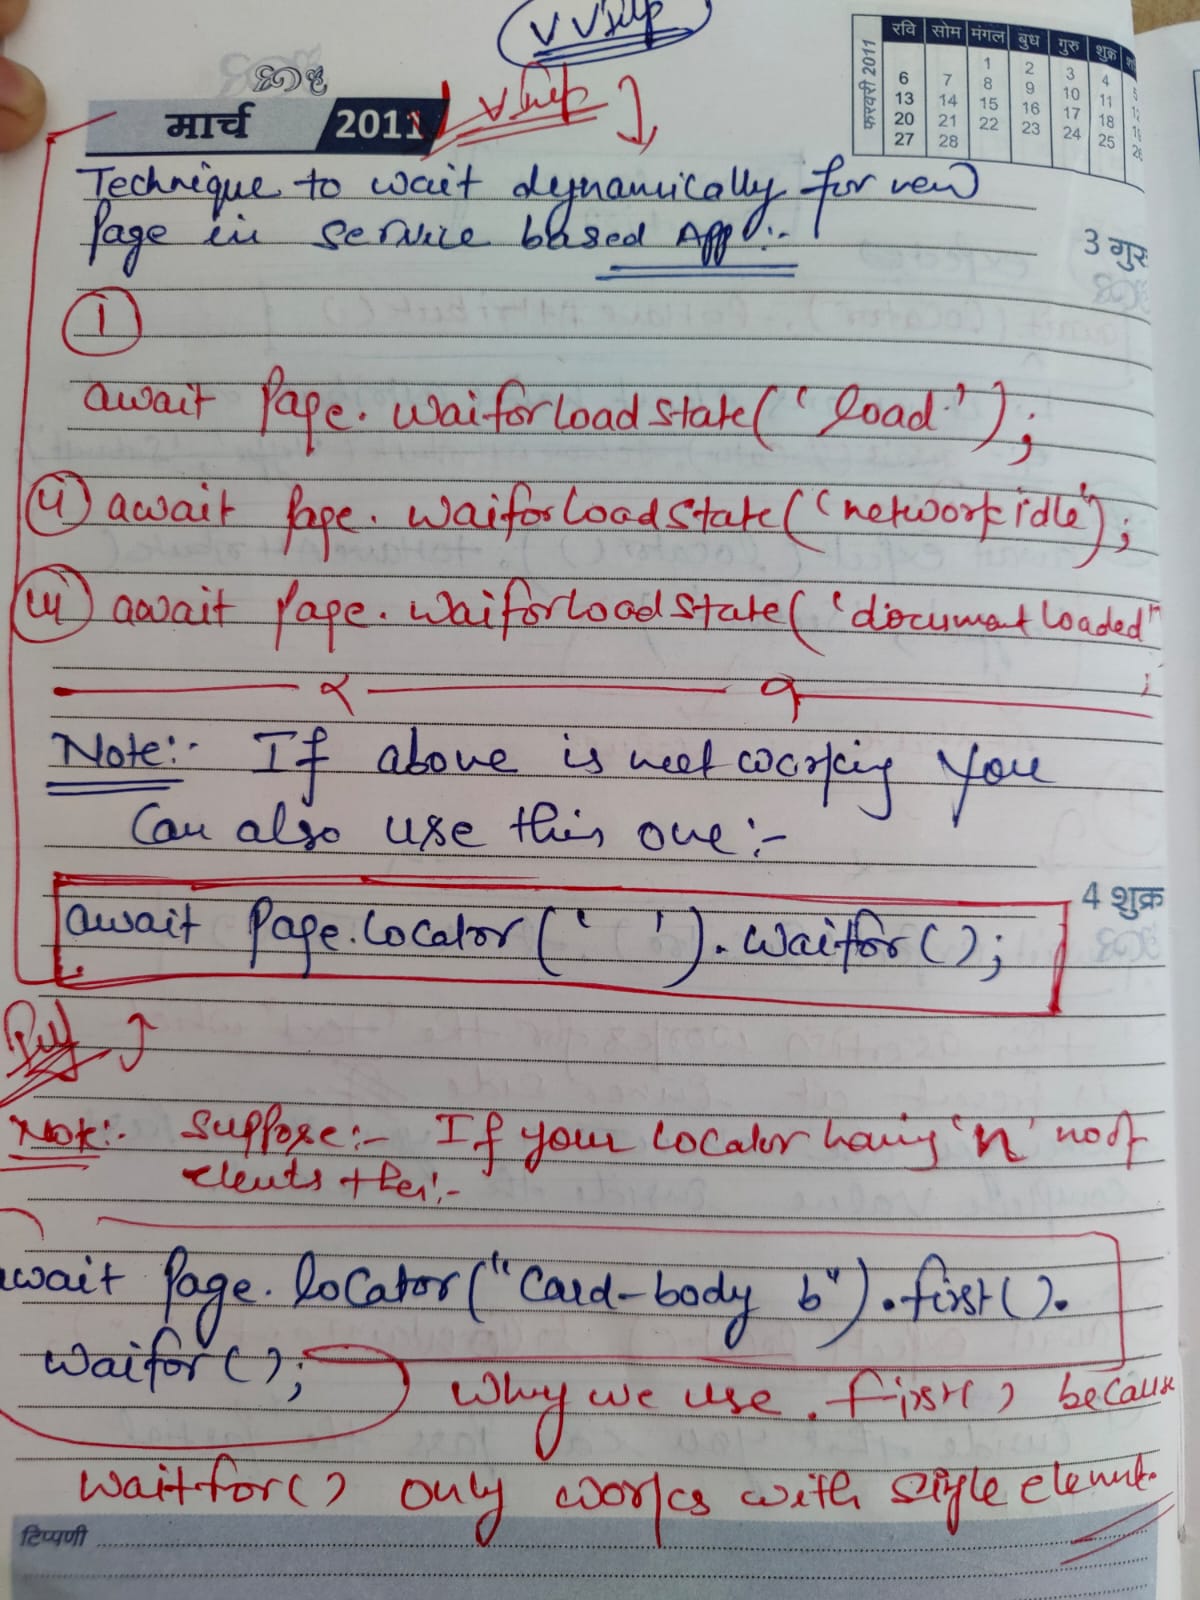 V V Imp
मार्च 2011 V Imp
फरवरी 2011
रवि सोम मंगल बुध गुरु शुक्र
1 2 3 4
6 7 8 9 10 11
13 14 15 16 17 18
20 21 22 23 24 25
27 28
Technique to wait dynamically for new
Page in service based App :-
3 गुरु
i
await Page. WaiforLoadState(‘load’);
ii) await Page. WaiforLoadState(‘networkidle’);
iii) await Page. WaiforLoadState(‘documentloaded’
;
Note:- If above is not working you
Can also use this one :-
4 शुक्र
await Page.Locator(‘ ’).waitfor();
Note:- Suppose :- If your locator having ‘n’ no of
elements then :-
await Page.locator("Card-body b").first().
waifor();
Why we use .first() because
waitfor() only works with single element.
टिप्पणी